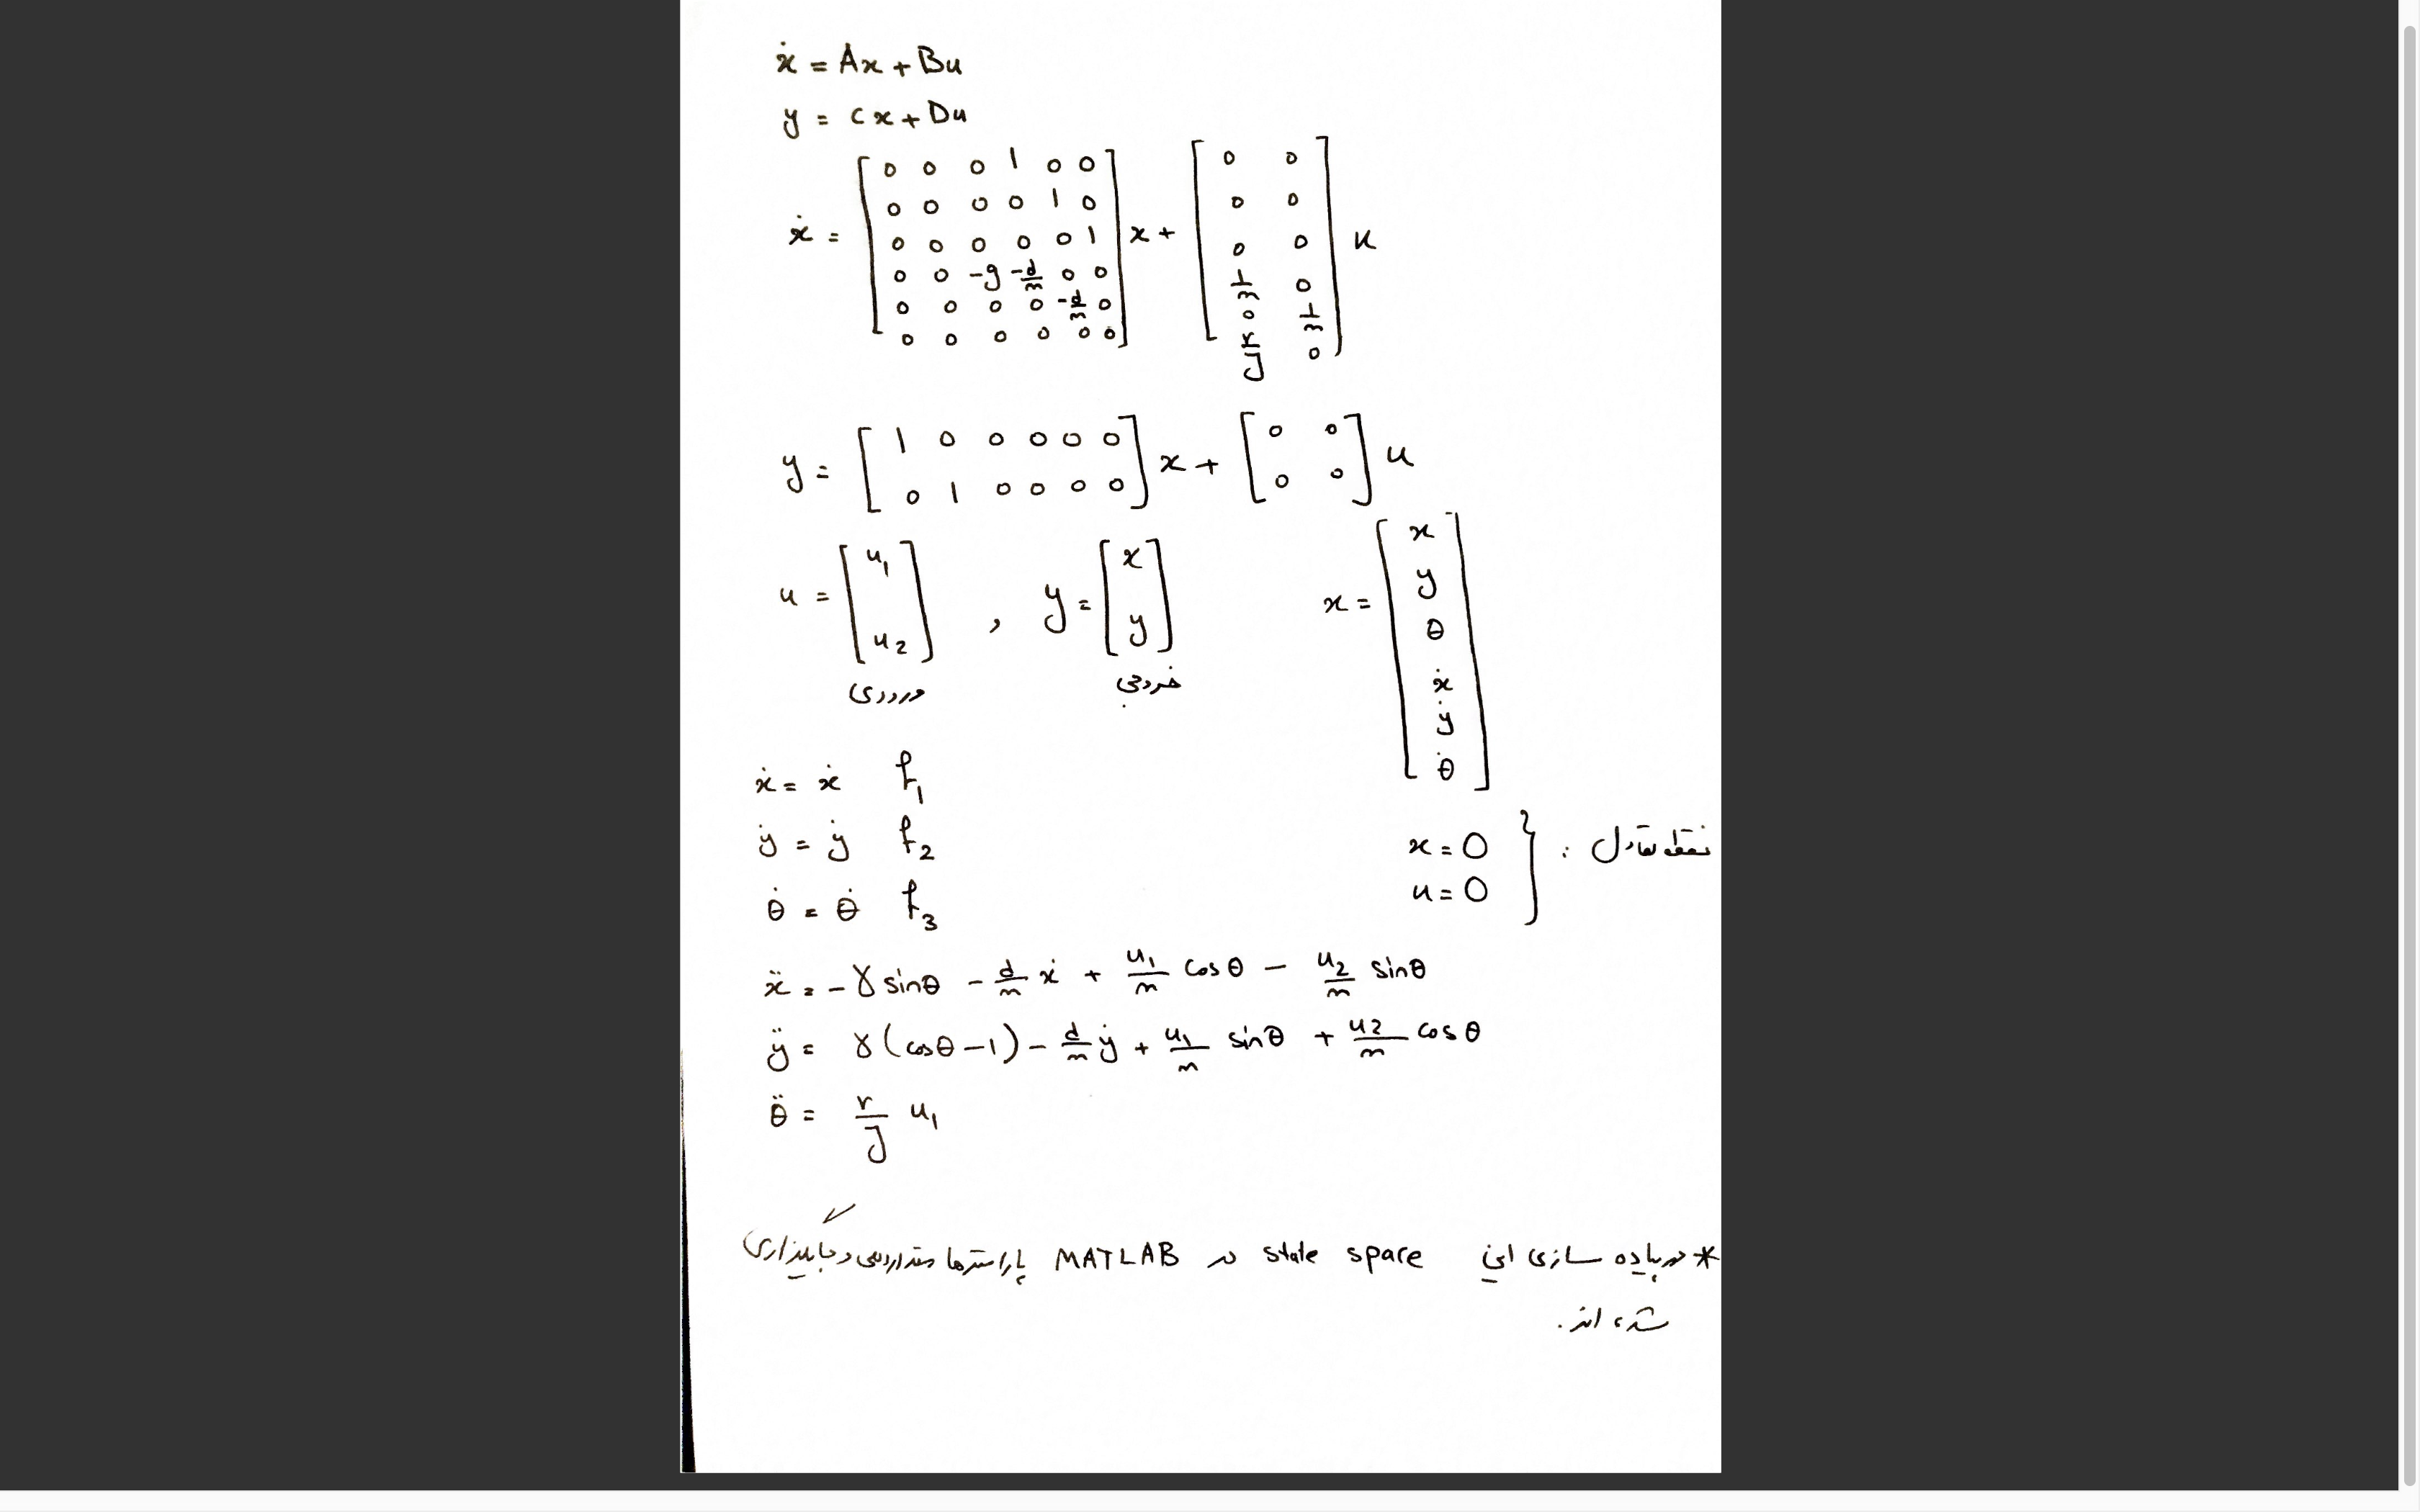 ẋ = Ax + Bu
y = Cx + Du
ẋ = [ 0 0 0 1 0 0 ; 0 0 0 0 1 0 ; 0 0 0 0 0 1 ; 0 0 -g -d/m 0 0 ; 0 0 0 0 -d/m 0 ; 0 0 0 0 0 0 ] x + [ 0 0 ; 0 0 ; 0 0 ; 1/m 0 ; 0 1/m ; r/J 0 ] u
y = [ 1 0 0 0 0 0 ; 0 1 0 0 0 0 ] x + [ 0 0 ; 0 0 ] u
u = [ u₁ ; u₂ ] , y = [ x ; y ] x = [ x ; y ; θ ; ẋ ; ẏ ; θ̇ ]
ورودی خروجی
ẋ = ẋ f₁
ẏ = ẏ f₂
θ̇ = θ̇ f₃
نقطه تعادل : { x = 0
u = 0
ẍ = -γ sinθ - d/m ẋ + u₁/m cosθ - u₂/m sinθ
ÿ = γ (cosθ - 1) - d/m ẏ + u₁/m sinθ + u₂/m cosθ
θ̈ = r/J u₁
* در پیاده سازی این state space در MATLAB پارامترها مقداردهی و جایگذاری
شده اند.